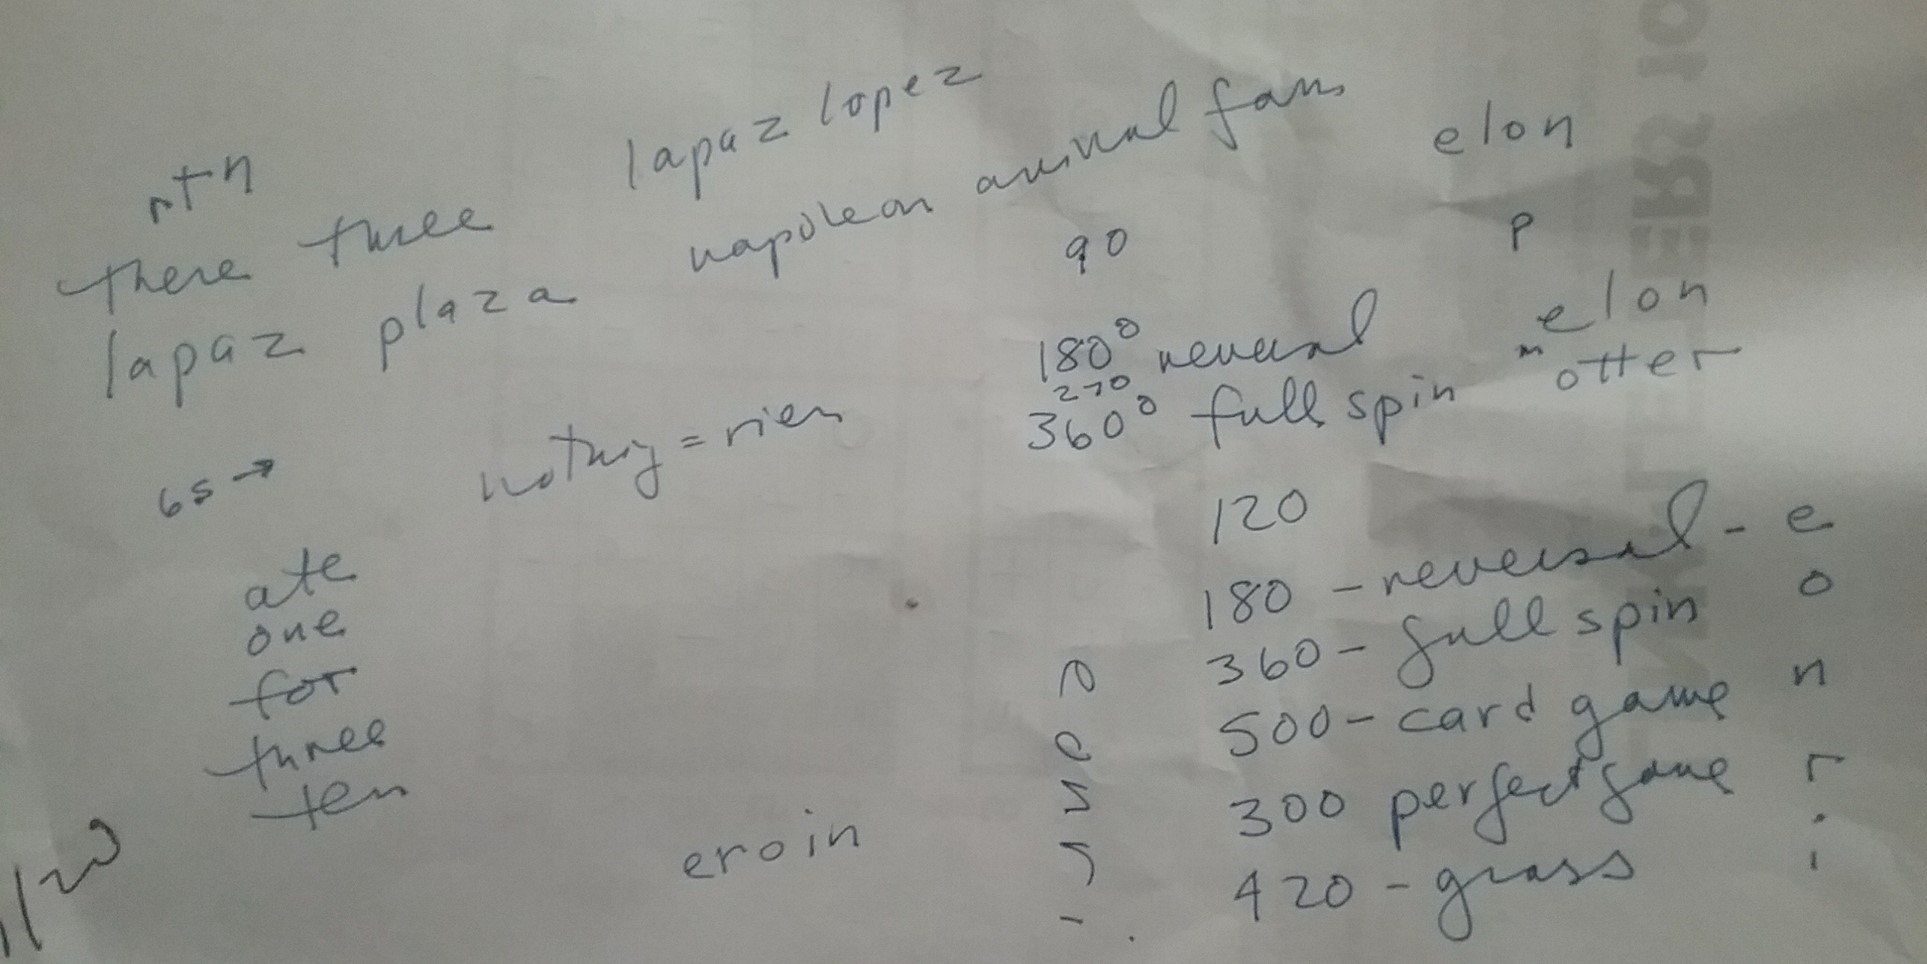 rtn
there three
lapaz plaza
lapaz lopez
napoleon animal farm
90
180° reversal
270
360° full spin
elon
p
elon
m otter
6s →
nothing = rien
ate
one
for
three
ten
eroin
120
180 - reversal - e
360 - full spin o
500 - card game n
300 perfect game r
420 - grass i